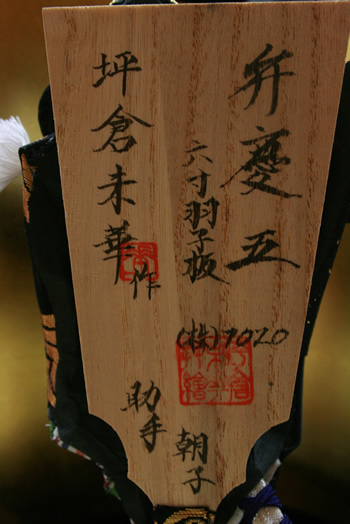 弁慶五
六寸羽子板
(株)7020
坪倉未華作
助手
朝子